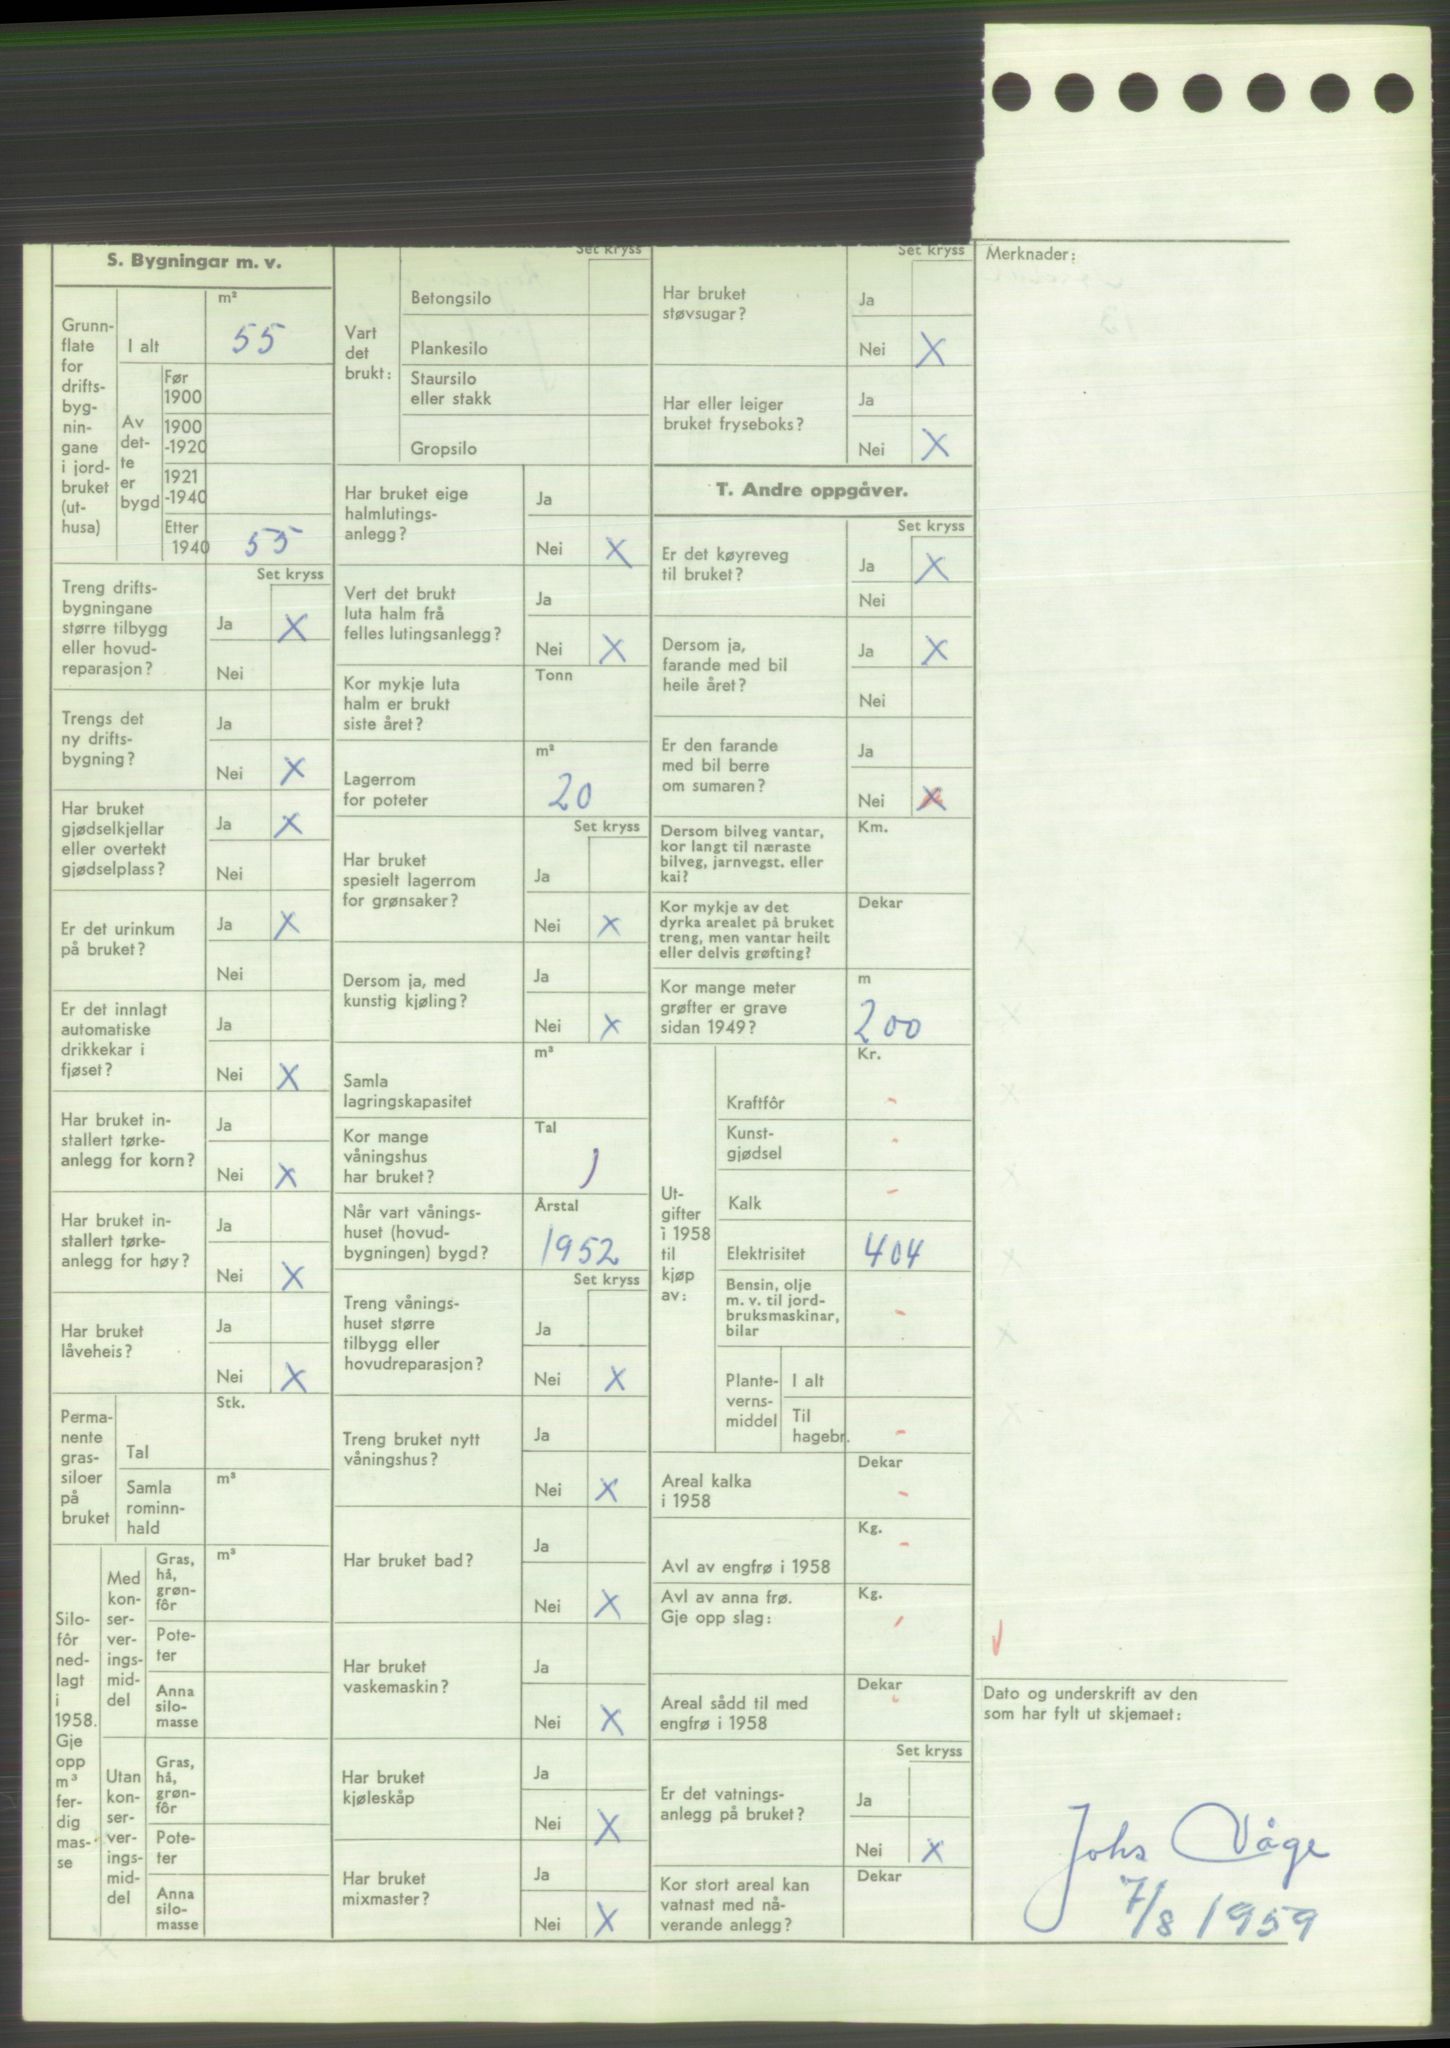 S. Bygningar m. v.
Grunn-
flate
for
drifts-
byg-
nin-
gane
i jord-
bruket
(ut-
husa)
m²
I alt
55
Av
det-
te
er
bygd
Før
1900
1900
-1920
1921
-1940
Etter
1940
55
Set kryss
Treng drifts-
bygningane
større tilbygg
eller hovud-
reparasjon?
Ja X
Nei
Trengs det
ny drifts-
bygning?
Ja
Nei X
Har bruket
gjødselkjellar
eller overtekt
gjødselplass?
Ja X
Nei
Er det urinkum
på bruket?
Ja X
Nei
Er det innlagt
automatiske
drikkekar i
fjøset?
Ja
Nei X
Har bruket in-
stallert tørke-
anlegg for korn?
Ja
Nei X
Har bruket in-
stallert tørke-
anlegg for høy?
Ja
Nei X
Har bruket
låveheis?
Ja
Nei X
Perma-
nente
gras-
siloer
på
bruket
Stk.
Tal
Samla
rominn-
hald
m³
Silo-
fôr
ned-
lagt
i
1958.
Gje
opp
m³
fer-
dig
mas-
se
Med
kon-
ser-
ver-
ings-
mid-
del
Gras,
hå,
grøn-
fôr
m³
Pote-
ter
Anna
silo-
masse
Utan
kon-
ser-
ver-
ings-
mid-
del
Gras,
hå,
grøn-
fôr
Pote-
ter
Anna
silo-
masse
Set kryss
Vart
det
brukt:
Betongsilo
Plankesilo
Staursilo
eller stakk
Gropsilo
Har bruket eige
halmlutings-
anlegg?
Ja
Nei X
Vert det brukt
luta halm frå
felles lutingsanlegg?
Ja
Nei X
Kor mykje luta
halm er brukt
siste året?
Tonn
Lagerrom
for poteter
m²
20
Set kryss
Har bruket
spesielt lagerrom
for grønsaker?
Ja
Nei X
Dersom ja, med
kunstig kjøling?
Ja
Nei X
Samla
lagringskapasitet
m³
Kor mange
våningshus
har bruket?
Tal
1
Når vart vånings-
huset (hovud-
bygningen) bygd?
Årstal
1952
Set kryss
Treng vånings-
huset større
tilbygg eller
hovudreparasjon?
Ja
Nei X
Treng bruket nytt
våningshus?
Ja
Nei X
Har bruket bad?
Ja
Nei X
Har bruket
vaskemaskin?
Ja
Nei X
Har bruket
kjøleskåp
Ja
Nei X
Har bruket
mixmaster?
Ja
Nei X
Set kryss
Har bruket
støvsugar?
Ja
Nei X
Har eller leiger
bruket fryseboks?
Ja
Nei X
T. Andre oppgåver.
Set kryss
Er det køyreveg
til bruket?
Ja X
Nei
Dersom ja,
farande med bil
heile året?
Ja X
Nei
Er den farande
med bil berre
om sumaren?
Ja
Nei X
Dersom bilveg vantar,
kor langt til næraste
bilveg, jarnvegst. eller
kai?
Km.
Kor mykje av det
dyrka arealet på bruket
treng, men vantar heilt
eller delvis grøfting?
Dekar
Kor mange meter
grøfter er grave
sidan 1949?
m
200
Ut-
gifter
i 1958
til
kjøp
av:
Kr.
Kraftfôr -
Kunst-
gjødsel -
Kalk -
Elektrisitet 404
Bensin, olje
m. v. til jord-
bruksmaskinar,
bilar -
Plante-
verns-
middel
I alt
Til
hagebr. -
Areal kalka
i 1958
Dekar
-
Avl av engfrø i 1958
Kg.
-
Avl av anna frø.
Gje opp slag:
Kg.
-
Areal sådd til med
engfrø i 1958
Dekar
-
Set kryss
Er det vatnings-
anlegg på bruket?
Ja
Nei X
Kor stort areal kan
vatnast med nå-
verande anlegg?
Dekar
Merknader:
Dato og underskrift av den
som har fylt ut skjemaet:
Johs Våge
7/8 1959